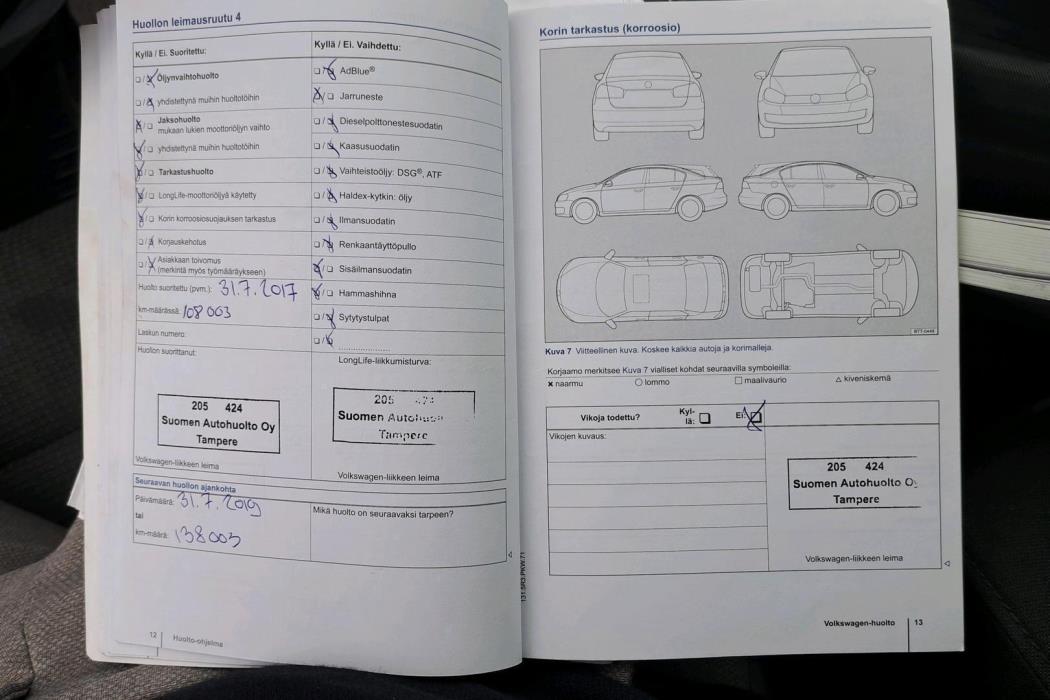 Huollon leimausruutu 4
Kyllä / Ei. Suoritettu:
Öljynvaihtohuolto
yhdistettynä muihin huoltotöihin
Jaksohuolto
mukaan lukien moottoriöljyn vaihto
yhdistettynä muihin huoltotöihin
Tarkastushuolto
LongLife-moottoriöljyä käytetty
Korin korroosiosuojauksen tarkastus
Korjauskehotus
Asiakkaan toivomus
(merkintä myös työmääräykseen)
Huolto suoritettu (pvm.): 31.7.2017
km-määrässä: 108 003
Laskun numero:
Huollon suorittanut:
205 424
Suomen Autohuolto Oy
Tampere
Volkswagen-liikkeen leima
Kyllä / Ei. Vaihdettu:
AdBlue®
Jarruneste
Dieselpolttonestesuodatin
Kaasusuodatin
Vaihteistoöljy: DSG®, ATF
Haldex-kytkin: öljy
Ilmansuodatin
Renkaantäyttöpullo
Sisäilmansuodatin
Hammashihna
Sytytystulpat
LongLife-liikkumisturva:
205
Suomen
Tampere
Volkswagen-liikkeen leima
Seuraavan huollon ajankohta
Päivämäärä: 31.7.2019
tai
km-määrä: 138003
Mikä huolto on seuraavaksi tarpeen?
12 Huolto-ohjelma
Korin tarkastus (korroosio)
Kuva 7 Viitteellinen kuva. Koskee kaikkia autoja ja korimalleja.
Korjaamo merkitsee Kuva 7 vialliset kohdat seuraavilla symboleilla:
× naarmu ○ lommo □ maalivaurio △ kiveniskemä
Vikoja todettu? Kyl-
lä: Ei:
Vikojen kuvaus:
205 424
Suomen Autohuolto
Tampere
Volkswagen-liikkeen leima
131.5R3.PKW.71
Volkswagen-huolto 13